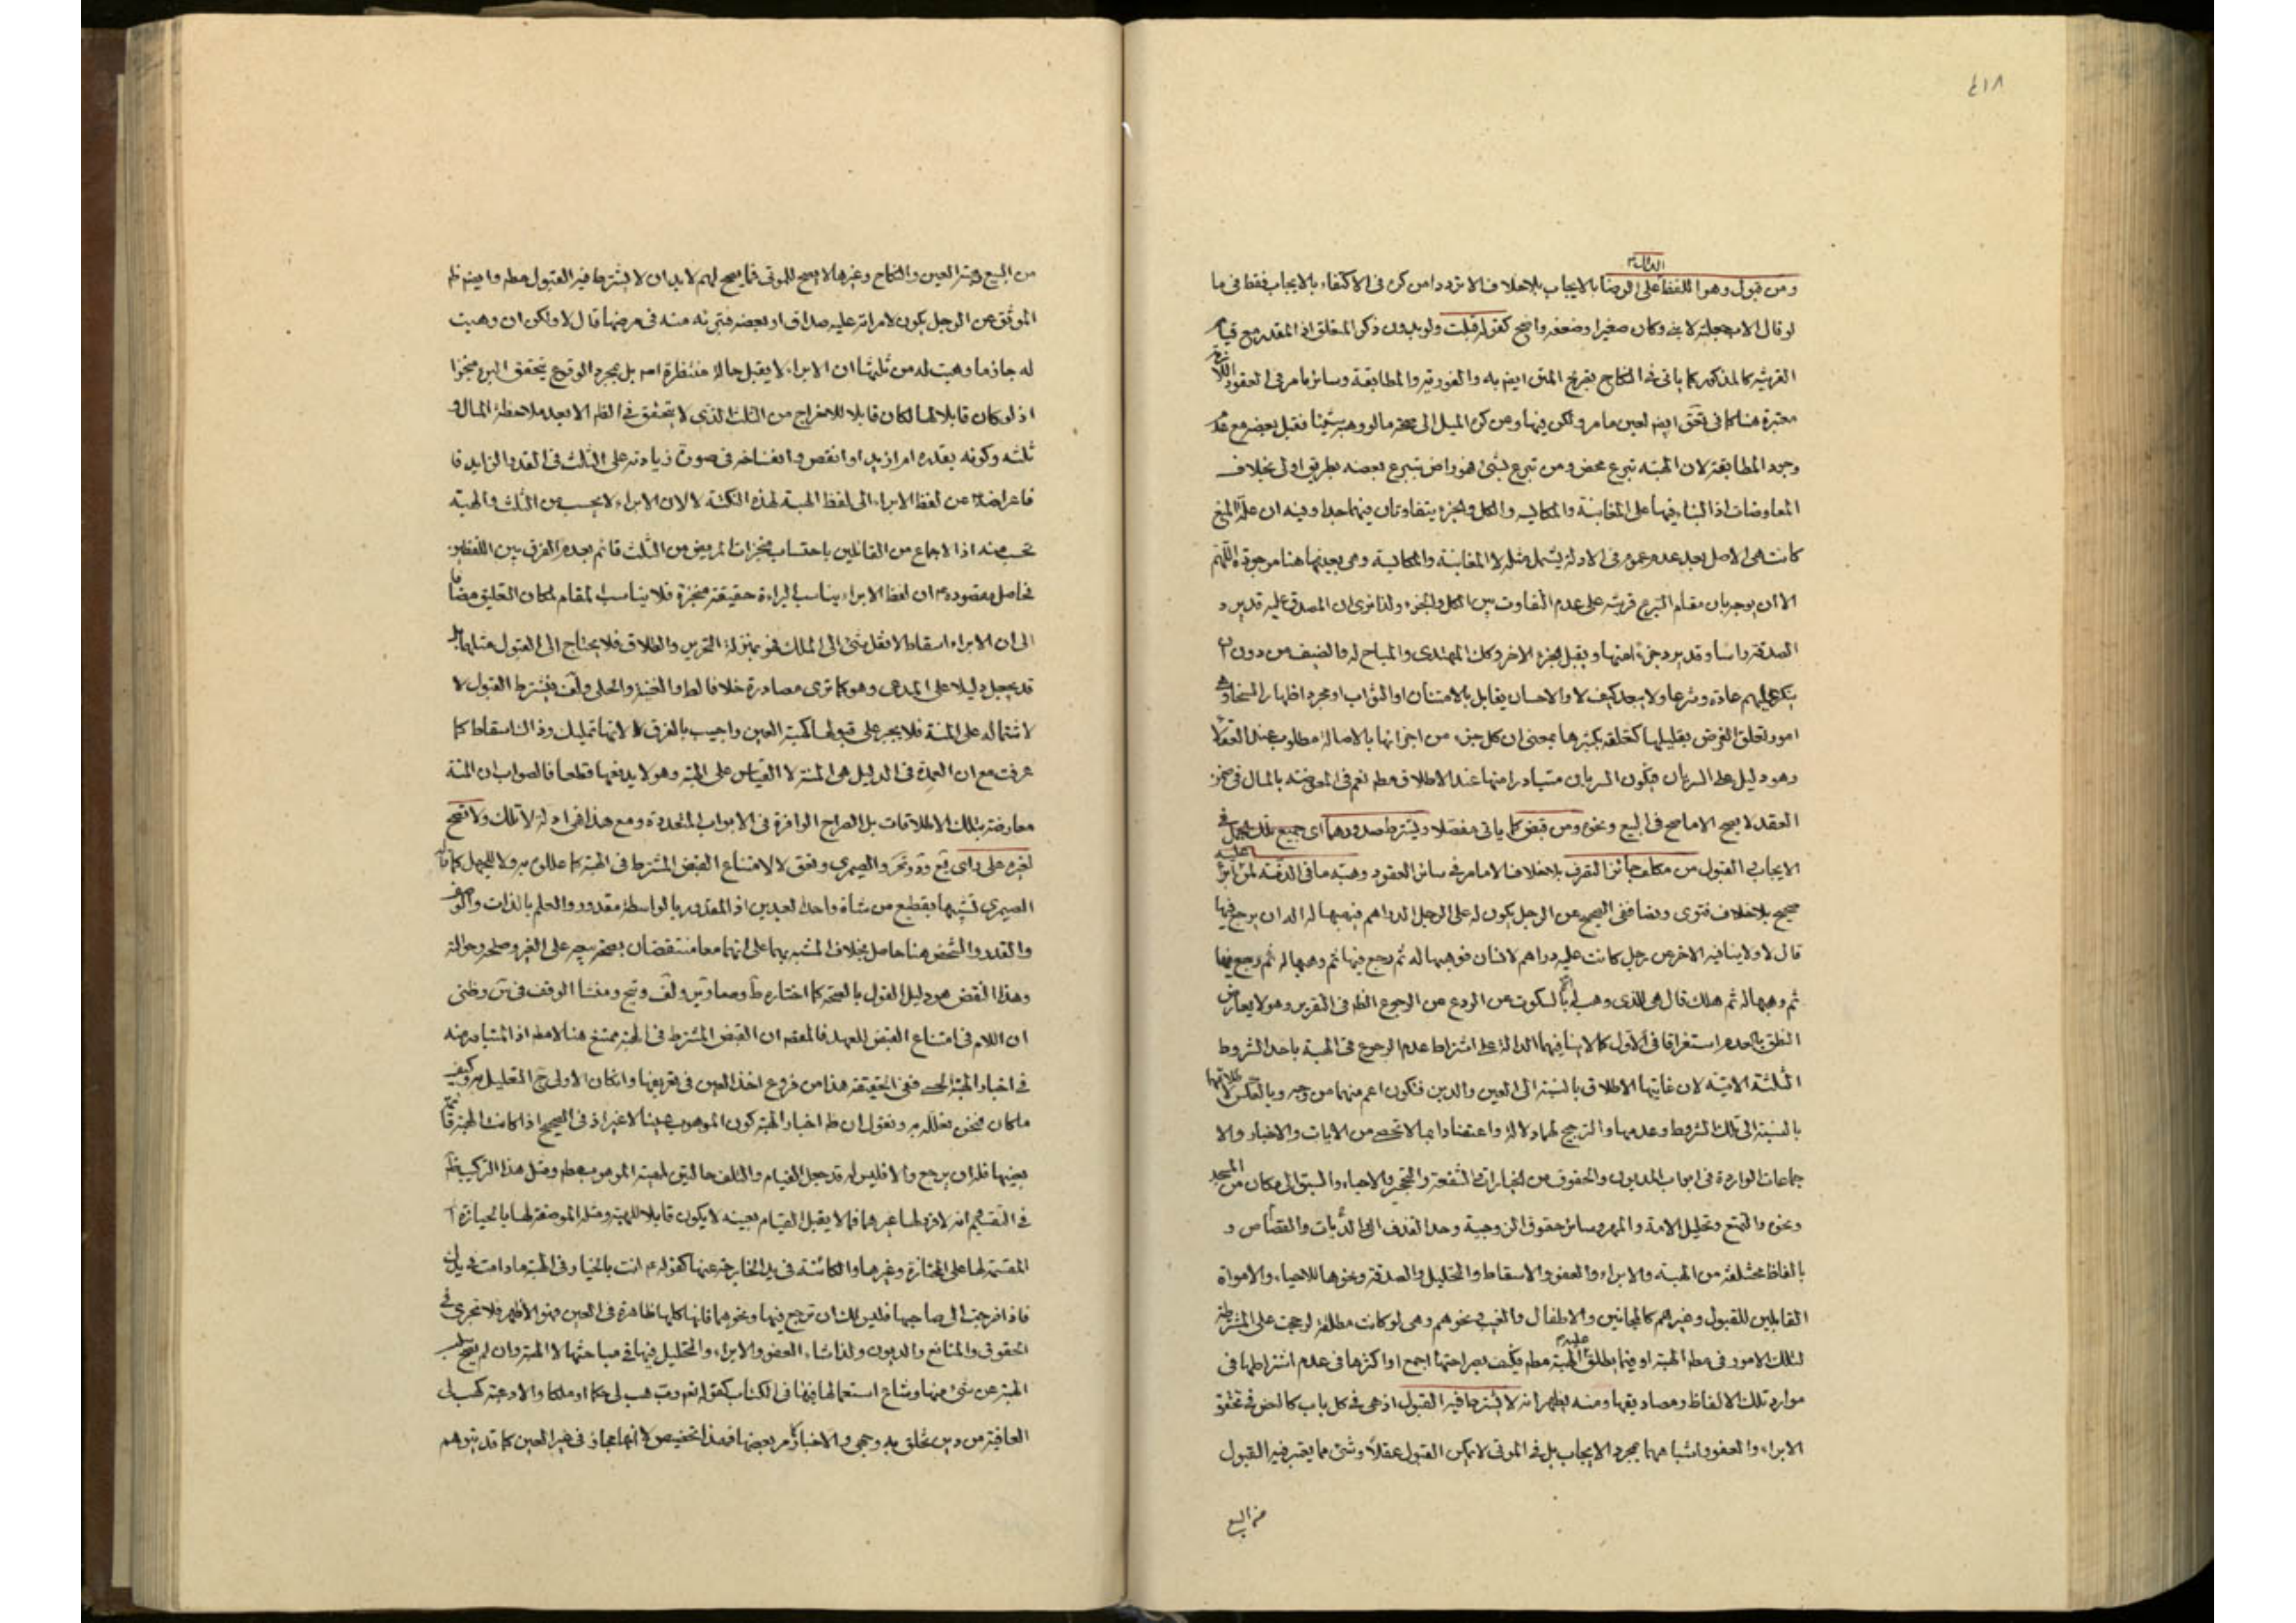 ٤١٨
الدال
ومن قبول وهو اللفظ على الرضا بالايجاب بلاخلاف الا تردد امن كرن فى الاكتفاء بالايجاب فقط فى ما
لو قال الاب جعلته لابنى وكان صغيرا وضعفه واضح كقوله قبلت ولو بدون ذكر المتعلق اذ المقدر مع قيام
القرينة كالمذكور كما ياتى فى النكاح بفرخ المتن ايضا به والفورية والمطابقة وسائر ما مر فى العقود اللازمة
معتبرة هنا كما فى تحق ايضا لعين ما مر ولكن فيها ومن كرن الميل الى صحة ما لو وهبه شيئا فقبل بعضه مع عدم
وجود المطابقة لان الهبة تبرع محض ومن تبرع بشئ فهو راض بتبرع بعضه بطريق اولى بخلاف
المعاوضات اذ البناء فيها على المغابنة والمكايسة والكل والجزء يتفاوتان فيها جدا وفيه ان علة المنع
كانت هى الاصل بعد عدم عموم فى الادلة يشمل مثله لا المغابنة والمكايسة وهى بعينها هنا موجودة اللهم
الا ان يوجه بان مقام التبرع قرينة على عدم التفاوت بين الكل والجزء ولذا نرى ان المصدق عليه قد يرد
الصدقة راسا وقد يرد جزءا منها ويقبل الجزء الاخر وكك المهدى والمباح له والضيف من دون ان
ينكر عليهم عادة وشرعا ولا يبعد كيف لا والاحسان يقابل بالامتنان او الثواب او مجرد اظهار السخاء وهى
امور تعلق الغرض بقليلها كتعلقه بكثيرها بمعنى ان كل جزء من اجزائها بالاصالة مطلوب عند العقلاء
وهو دليل على السريان فيكون السريان متبادرا منها عند الاطلاق مطم نعم فى المعوضة بالمال فى ضمن
العقد لا يصح الا ما صح فى البيع ونحوه ومن قبض كما ياتى مفصلا ويشترط صدورهما اى جميع تلك الجمل فى
الايجاب والقبول من مكلف جائز التصرف بلاخلاف الا ما مر فى سائر العقود وهبة ما فى الذمة لمن عليه ابراء
صحيح بلاخلاف فتوى ونصا ففى الصحيح عن الرجل يكون له على الرجل الدراهم فيهبها له اله ان يرجع فيها
قال لا ولا ينافيه الاخر عن رجل كانت عليه دراهم لانسان فوهبها له ثم رجع فيها ثم وهبها له ثم رجع فيها
ثم وهبها له ثم هلك قال هى للذى وهب له بالسكوت عن الردع عن الرجوع الظم فى التقرير وهو لا يعارض
النطق بالعدم استغراقا فى الاول كما لا ينافيهما الدالة على اشتراط عدم الرجوع فى الهبة باحد الشروط
الثلثة الاتية لان غايتها الاطلاق بالنسبة الى العين والدين فتكون اعم منهما من وجه وبالعكس لاطلاقهما
بالنسبة الى تلك الشروط وعدمها والترجيح لهما دلالة واعتضادا بما لا تحصى من الايات والاخبار والا
جماعات الواردة فى ابواب الديون والحقوق من الخيارات والشفعة والتحجير والاحياء والسبق الى مكان من المسجد
ونحوه والمتع وتحليل الامة والمهر وسائر حقوق الزوجية وحد القذف الى الديات والقصاص و
بالفاظ مختلفة من الهبة والابراء والعفو والاسقاط والتحليل والصدقة ونحوها للاحياء والاموات
القابلين للقبول وغيرهم كالمجانين والاطفال والغيب ونحوهم وهى لو كانت مطلقة لرجحت على المشرطة
لتلك الامور فى مطم الهبة او فيما يطلق عليه الهبة مطم فكيف بصراحتها اجمع او اكثرها فى عدم اشتراطها فى
موارد تلك الالفاظ ومصاديقها ومنه يظهر انه لا يشترط فيه القبول اذ هى فى كل باب كالنص فى تحقق
الابراء والعفو واشباههما بمجرد الايجاب بل فى الموتى لا يمكن القبول عقلا وشئ مما يعتبر فيه القبول
من البيع
من البيع وهبة العين والنكاح وغيرها لا يصح للموتى فما يصح لهم لابد ان لا يشترط فيه القبول مطم وايضا ظم
الموثق عن الرجل يكون لامراته عليه صداق او بعضه فتبرئه منه فى مرضها قال لا ولكن ان وهبت
له جاز ما وهبت له من ثلثها ان الابراء لا يقبل حالة منتظرة اصم بل بمجرد الوقوع يتحقق البرء منجزا
اذ لو كان قابلا لها لكان قابلا للاخراج من الثلث الذى لا يتحقق فى الظم الا بعد ملاحظة المال و
ثلثه وكونه بقدره ام ازيد او انقص وانفساخه فى صورة زيادته على الثلث فى القدر الزايد فا
فاعراضه عن لفظ الابراء الى لفظ الهبة لهذه النكتة لا لان الابراء لا يحسب من الثلث والهبة
تحسب منه اذ الاجماع من القائلين باحتساب منجزات المريض من الثلث قائم بعدم الفرق بين اللفظين
فحاصل مقصوده ان لفظ الابراء يناسب البراءة حقيقة منجزة فلا يناسب المقام لمكان التعليق مضافا
الى ان الابراء اسقاط لا نقل شئ الى الملك فهو بمنزلة التحرير والطلاق فلا يحتاج الى القبول مثلهما بل
قد يجعل دليلا على المدعى وهو كما ترى مصادرة خلافا لط والغنية والحلى ولف فيشترط القبول لا
لاشتماله على المنة فلا يجبر على قبولها كهبة العين واجيب بالفرق لا لانها تمليك وذا اسقاط كما
عرفت مع ان العمدة فى الدليل هى المنة لا القياس على الهبة وهو لا يدفعها قطعا فالصواب ان المنة
معارضة بتلك الاطلاقات بل الصراح الوافرة فى الابواب المتعددة ومع هذا فى ادلة لا تلك ولا تصح
لغيره على راى يع ود وتحر والصيمرى ونحق لا لامتناع القبض المشترط فى الهبة كما عللوه به ولا للجهل كما قاله
الصيمرى تشبيها بقطيع من شاة واحد العبدين اذ المقدور بالواسطة مقدور والعلم بالذات والوصف
والقدر والشخص هنا حاصل بخلاف المشبه بهما على انهما معا منتقضان بصحة بيعه على الغير وصلحه وحوالته
وهذا النقض هو دليل القول بالصحة كما اختاره ط ومعاوين ولف وتبح ومنشا الوقف فى تن وظنى
ان اللام فى امتناع القبض للعهد فالمقصم ان القبض المشترط فى الهبة ممتنع هنا لا مطم اذ المتبادر منه
فى اخبار الهبة الحسى ففى الحقيقة هذا من فروع اخذ العين فى تعريفها وان كان الاولى ح التعليل به وكيف
ما كان فنحن نعلله به ونقول ان ظم اخبار الهبة كون الموهوب عينا لا غير اذ فى الصحيح اذا كانت الهبة قائمة
بعينها فله ان يرجع والا فليس له قد جعل القيام والتلف حالتين لهبة الموهوب مطم ومثل هذا التركيب ظم
فى التقسيم انه لا فرد لها غيرهما فما لا يقبل القيام بعينه لا يكون قابلا للهبة ومثله الموصفة لها بالحيازة
المقسمة لها على المحتازة وغيرها والكائنة فى يد الخارجة عنها كقوله انت بالخيار فى الهبة ما دامت فى يدك
فاذا خرجت الى صاحبها فليس لك ان ترجع فيها ونحوهما فانها كلها ظاهرة فى العين وهو الاظهر فلا تجرى فى
الحقوق والمنافع والديون ولذا شاء العفو والابراء والتحليل فيها فى مباحثها لا الهبة وان لم يصح سلب
الهبة عن شئ منها وشاع استعمالها فيها فى الكتاب كقوله تعم رب هب لى حكما او ملكا والادعية كهب لى
العافية من دين تخلق به وجهى والاخبار مر بعضها فهذا تخصيص لا انها مجاز فى غير العين كما قد يتوهم